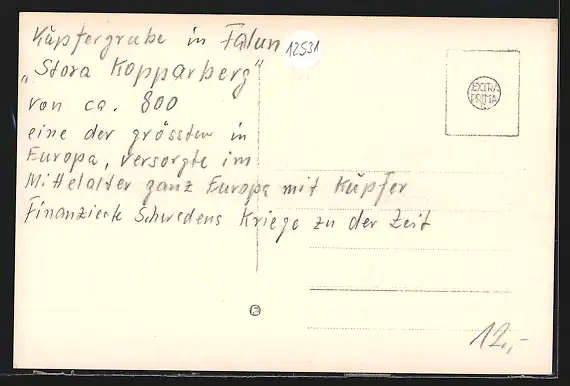 Küpfergrube in Falun
12531
„Stora Kopparberg"
von ca. 800
eine der grössten in
Europa, versorgte im
Mittelalter ganz Europa mit Küpfer
Finanzierte Schwedens Kriege zu der Zeit
EXTRA
PRIMA
12,-